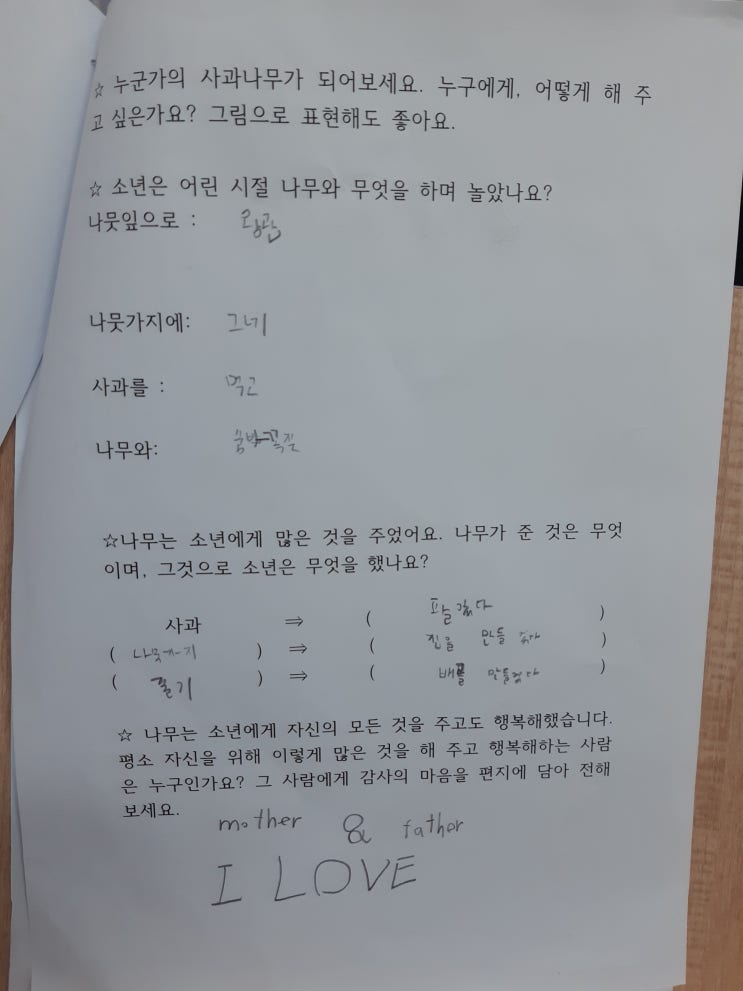 ☆ 누군가의 사과나무가 되어보세요. 누구에게, 어떻게 해 주
고 싶은가요? 그림으로 표현해도 좋아요.
☆ 소년은 어린 시절 나무와 무엇을 하며 놀았나요?
나뭇잎으로 : 왕관
나뭇가지에: 그네
사과를 : 먹고
나무와: 숨박꼭질
☆나무는 소년에게 많은 것을 주었어요. 나무가 준 것은 무엇
이며, 그것으로 소년은 무엇을 했나요?
사과 ⇒ ( 팔았다 )
( 나뭇가지 ) ⇒ ( 집을 만들었다 )
( 줄기 ) ⇒ ( 배를 만들었다 )
☆ 나무는 소년에게 자신의 모든 것을 주고도 행복해했습니다.
평소 자신을 위해 이렇게 많은 것을 해 주고 행복해하는 사람
은 누구인가요? 그 사람에게 감사의 마음을 편지에 담아 전해
보세요.
mother & father
I LOVE